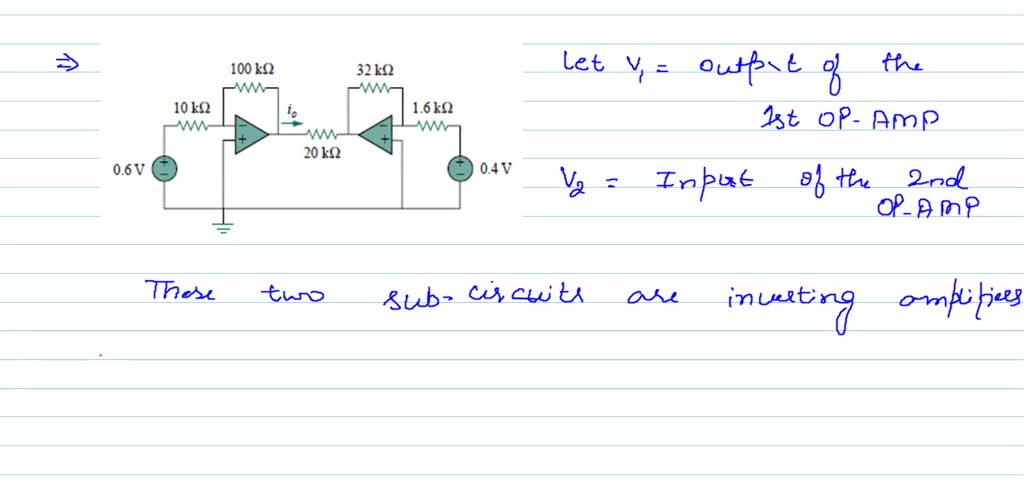 ⇒
100 kΩ 32 kΩ
10 kΩ i₀ 1.6 kΩ
20 kΩ
0.6 V 0.4 V
Let V₁ = output of the
1st OP-AMP
V₂ = Input of the 2nd
OP-AMP
These two sub-circuits are inverting amplifiers